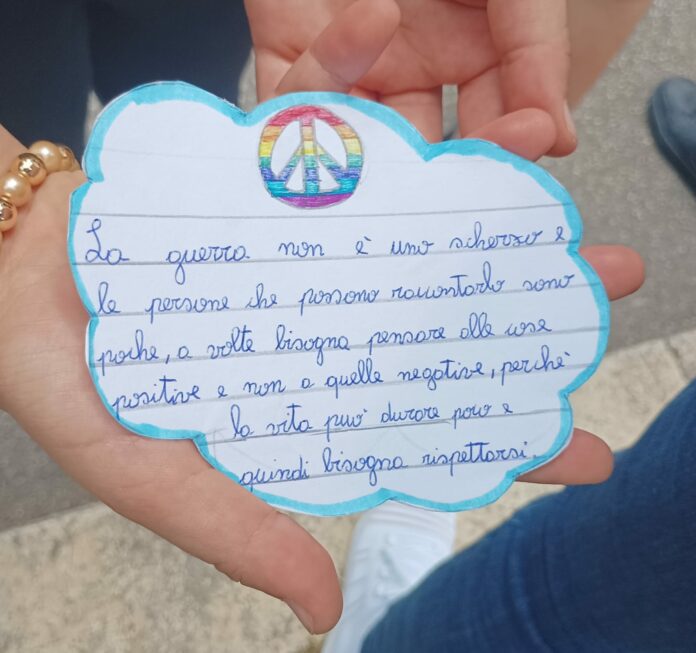 La guerra non è uno scherzo e
le persone che possono raccontarlo sono
poche, a volte bisogna pensare alle cose
positive e non a quelle negative, perchè
la vita può durare poco e
quindi bisogna rispettarsi.